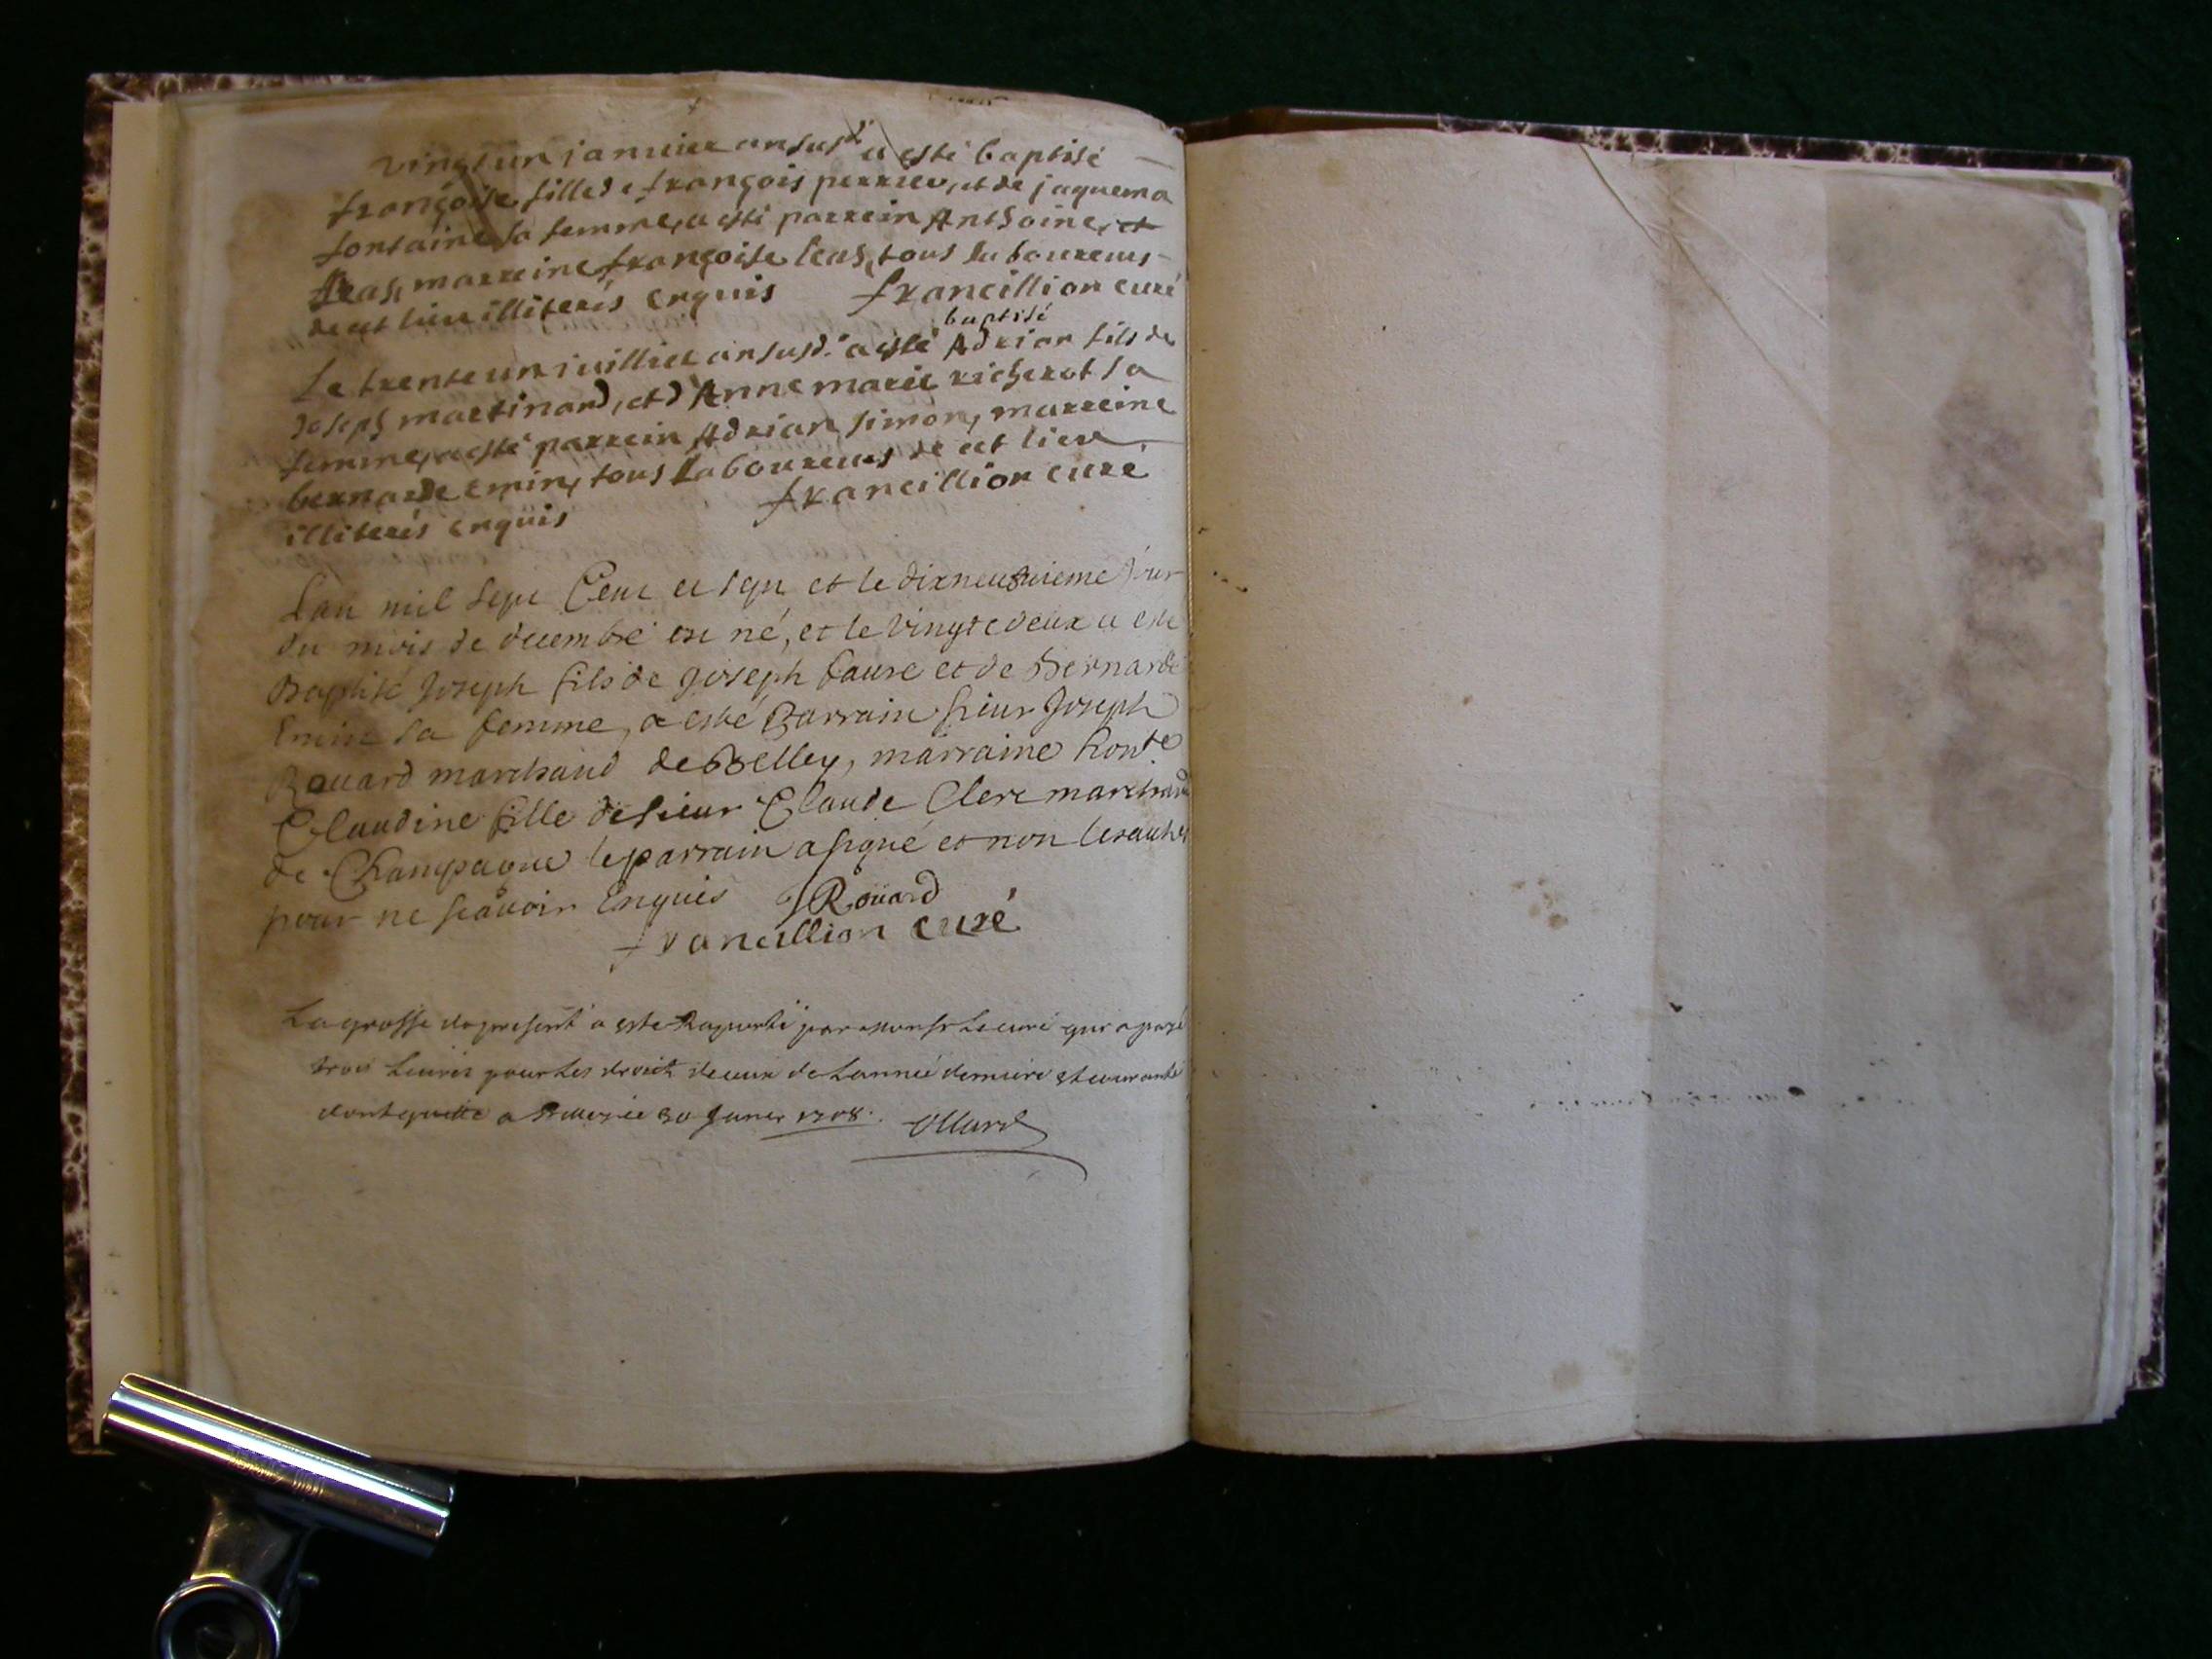 vingt un janvier an susd. a esté baptisé
françoise fille de françois perrier, et de jaquema
fontaine sa femme, a esté parrein Anthoine
marreine françoise leas, tous laboureurs
de cet lieu illiterés enquis francillion curé
baptisé
Le trente un juilliet an susd. a esté Adrian fils de
Joseph martinand, et d'Anne marie richerot sa
femme, a esté parrein Adrian simon, marreine
bernarde emin, tous laboureurs de cet lieu
illiterés enquis francillion curé
L'an mil sept Cent et sept et le dixneuvieme jour
du mois de decembre est né, et le vingt deux a esté
Baptisé Joseph fils de Joseph faure et de Bernarde
Emin sa femme, a esté Parrain sieur Joseph
Rouard marchand de Belley, marraine hon.te
Claudine fille de sieur Claude Clerc marchand
de Champagne le parrain a signé et non les autres
pour ne sçavoir Enquis JRoüard
francillion curé
La grosse du present a esté Raportée par monsr Le curé qui a payé
trois Livres pour les droict deceux de Lannée derniere et courante
dont quitte a ce 30 Janer 1708. Ollard